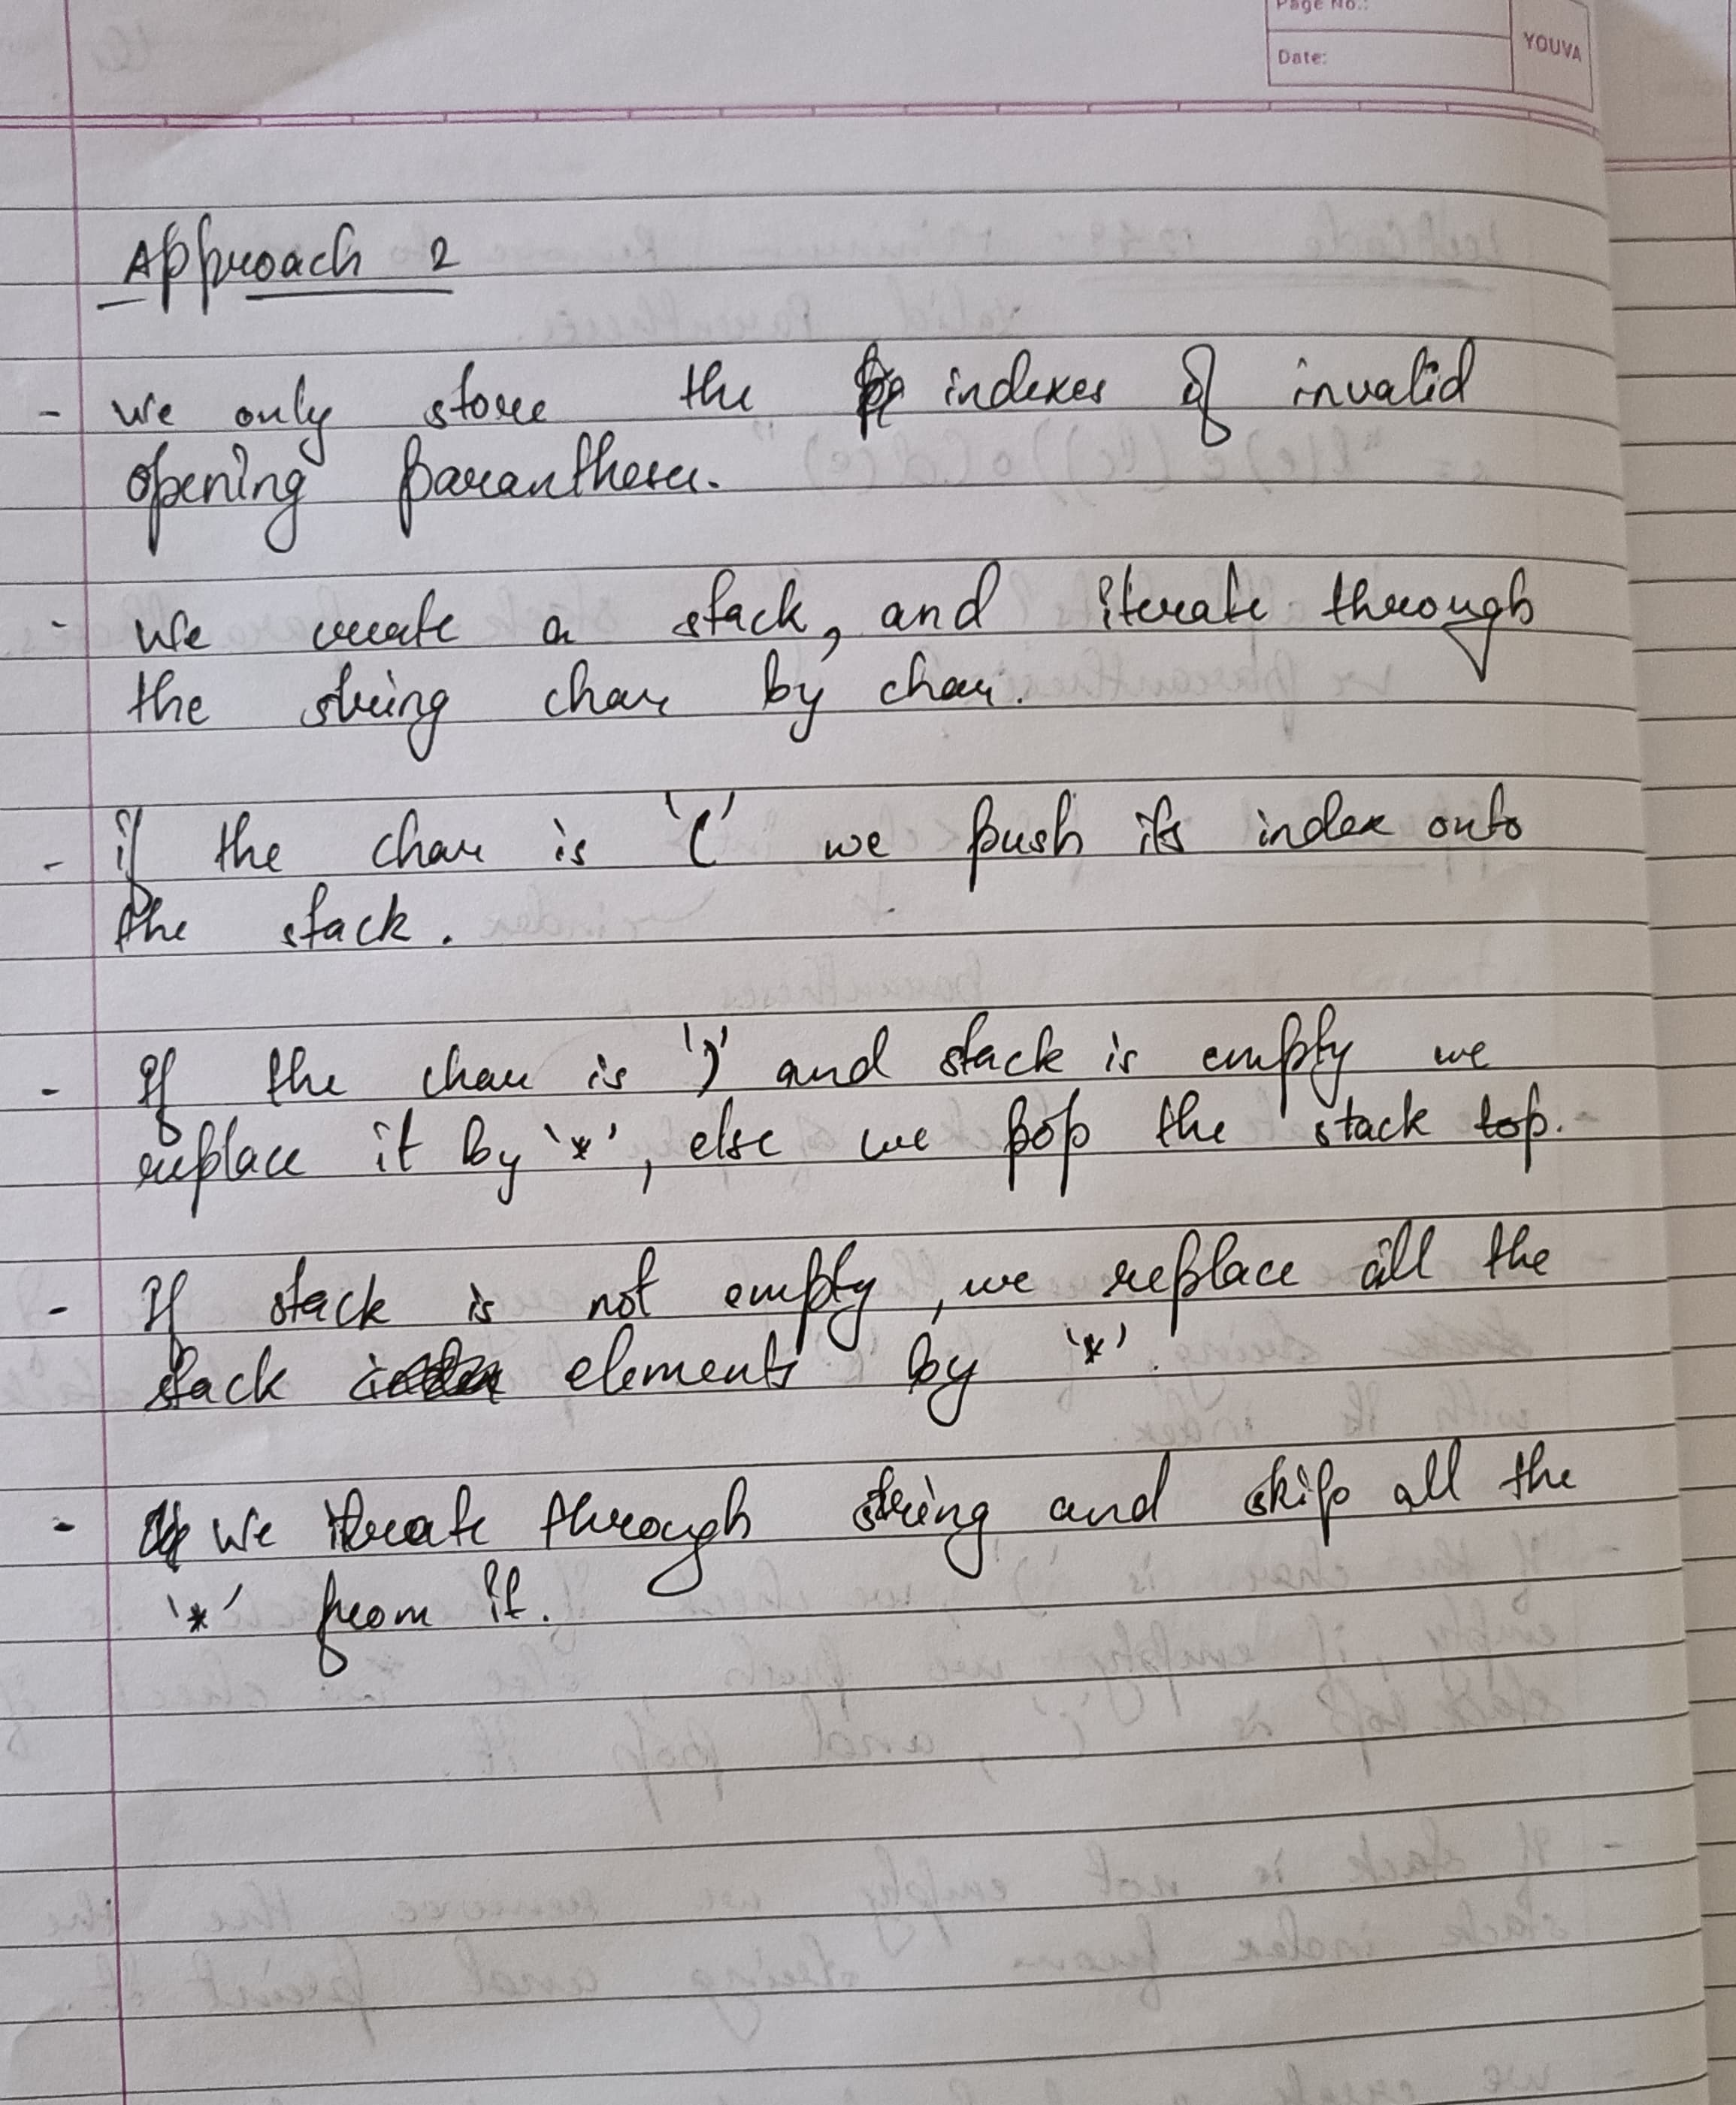 Page No.:
Date:
YOUVA
Approach 2
- We only store the indexes of invalid
opening parantheses.
- We create a stack, and iterate through
the string char by char.
- if the char is '(' we push its index onto
the stack.
- If the char is ')' and stack is empty we
replace it by '*', else we pop the stack top.
- If stack is not empty, we replace all the
stack elements by '*'.
- We iterate through string and skip all the
'*' from it.